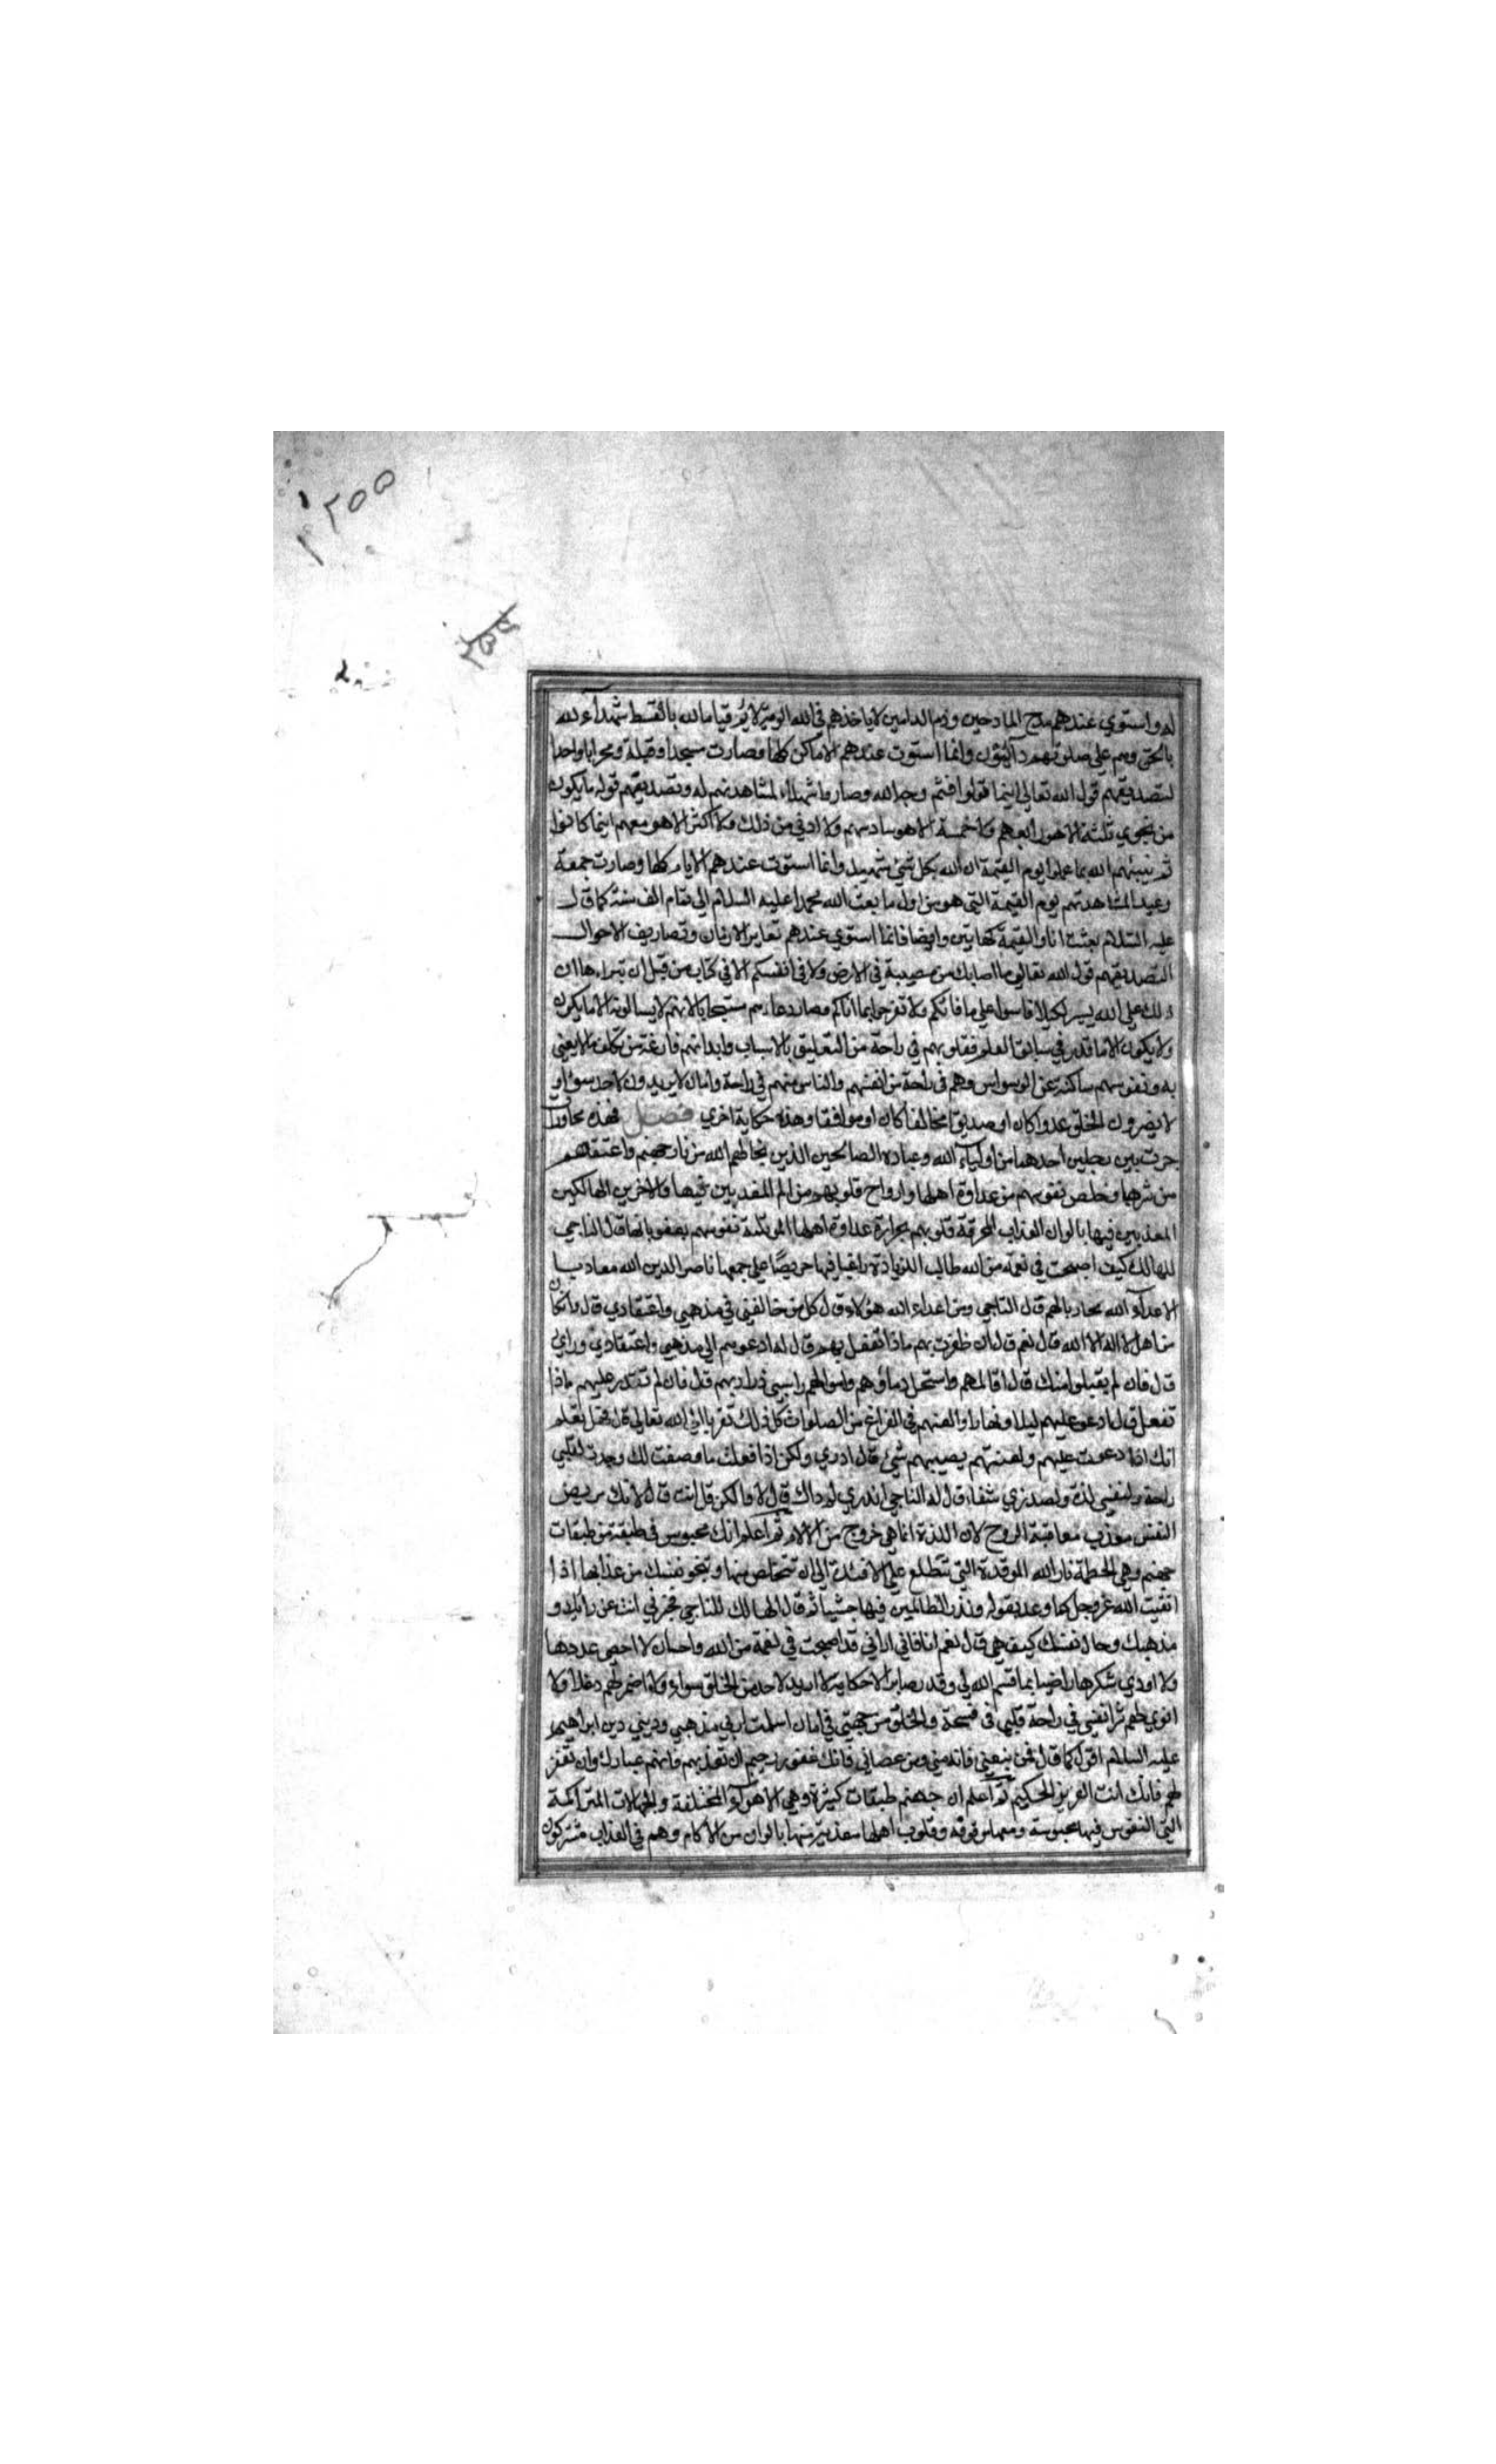 ٢٥٥
٢٥٥
له واستوي عندهم مدح المادحين وذم الذامين لا ياخذهم في الله لومة لائم قياما لله بالقسط شهدآء لله
بالحق وهم علي صلوتهم دآئمون وانما استوت عندهم الاماكن كلها وصارت مسجدا وقبلة ومحرابا واحدا
لتصديقهم قول الله تعالي اينما تولوا فثم وجه الله وصاروا شهداء لمشاهدتهم له وتصديقهم قوله ما يكون
من نجوي ثلثة الا هو رابعهم ولا خمسة الا هو سادسهم ولا ادني من ذلك ولا اكثر الا هو معهم اينما كانوا
ثم ينبئهم الله بما عملوا يوم القيمة ان الله بكل شئ شهيد وانما استوت عندهم الايام كلها وصارت جمعة
وعيدا لمشاهدتهم يوم القيمة التي هو من اول ما بعث الله محمدا عليه السلام الي تمام الف سنة كما قال
عليه السلام بعثت انا والقيمة كهاتين وايضا فانما استوي عندهم تغاير الازمان وتصاريف الاحوال
لتصديقهم قول الله تعالي ما اصابك من مصيبة في الارض ولا في انفسكم الا في كتاب من قبل ان نبراءها ان
ذلك علي الله يسير لكيلا تاسوا علي ما فاتكم ولا تفرحوا بما اتاكم وصار دعاءهم مستجابا لانهم لا يسالونه الا ما يكون
ولا يكون الا ما قدر في سابق العلم فقلوبهم في راحة من التعليق بالاسباب وابدانهم فارغة من تكلف ما لا يعني
به ونفوسهم ساكنة عن الوسواس وهم في راحة من انفسهم والناس منهم في راحة وامان لا يريدون لاحد سوءا و
لا يضرون الخلق عدوا كان او صديق مخالفا كان او موافقا وهذه حكاية اخري فصل فهذه محاورة
جرت بين رجلين احدهما من اوليآء الله وعباده الصالحين الذين نجاهم الله من نار جهنم واعتقهم
من شرها وخلص نفوسهم من عداوة اهلها وارواح قلوبهم من الم المعذبين فيها والاخر من الهالكين
المعذبين فيها بالوان العذاب المحرقة قلوبهم بحرارة عداوة اهلها المولمة نفوسهم بعقوباتها قال الناجي
للهالك كيف اصبحت في نعمة من الله طالب للزيادة راغبا فيها حريصا علي جمعها ناصر الدين الله معاديا
لاعدآء الله محاربا لهم قال الناجي ومن اعداء الله هؤلاء قال كل من خالفني في مذهبي واعتقادي قال وان كان
من اهل لا اله الا الله قال نعم قال ان ظفرت بهم ماذا تفعل بهم قال له ادعوهم الي مذهبي واعتقادي ورايي
قال فان لم يقبلوا منك قال اقاتلهم واستحل دماؤهم واموالهم واسبي ذراريهم قال فان لم تقتدر عليهم ماذا
تفعل قال ادعو عليهم ليلا ونهارا والعنهم في الفراغ من الصلوات كل ذلك تقربا الي الله تعالي قال فهل تعلم
انك اذا دعوت عليهم ولعنتهم يصيبهم شئ قال لا ادري ولكن اذا فعلت ما وصفت لك وجدت لقلبي
راحة ولنفسي لذة ولصدري شفاء قال له الناجي اتدري لم ذاك قال لا ولكن قل انت قال لانك مريض
النفس معذب معاقبة الروح لان اللذة انما هي خروج من الالام ثم اعلم انك محبوس في طبقة من طبقات
جهنم وهي الحطمة نار الله الموقدة التي تتطلع علي الافئدة الي ان تتخلص منها وتنجو نفسك من عذابها اذا
اتقيت الله عز وجل كما وعد بقوله ونذر الظالمين فيها جثيا ثم قال الهالك للناجي فخبرني انت عن رايك و
مذهبك وحال نفسك كيف هي قال نعم انا فاني اراني قد اصبحت في نعمة من الله واحسان لا احصي عددها
ولا اودي شكرها راضيا بما قسم الله لي وقدر صابر الاحكامه لا اريد لاحد من الخلق سواء ولا اضمر لهم دغلا ولا
انوي لهم شرا نفسي في راحة قلبي في فسحة والخلق من جهتي في امان اسلمت لربي مذهبي وديني دين ابراهيم
عليه السلام اقول كما قال فمن تبعني فانه مني ومن عصاني فانك غفور رحيم ان تعذبهم فانهم عبادك وان تغفر
لهم فانك انت العزيز الحكيم ثم اعلم ان جهنم طبقات كثيرة وهي الاهوآء المختلفة والجهالات المتراكمة
التي النفوس فيها محبوسة وقلوب اهلها معذبة منها بالوان من الالام وهم في العذاب مشتركون